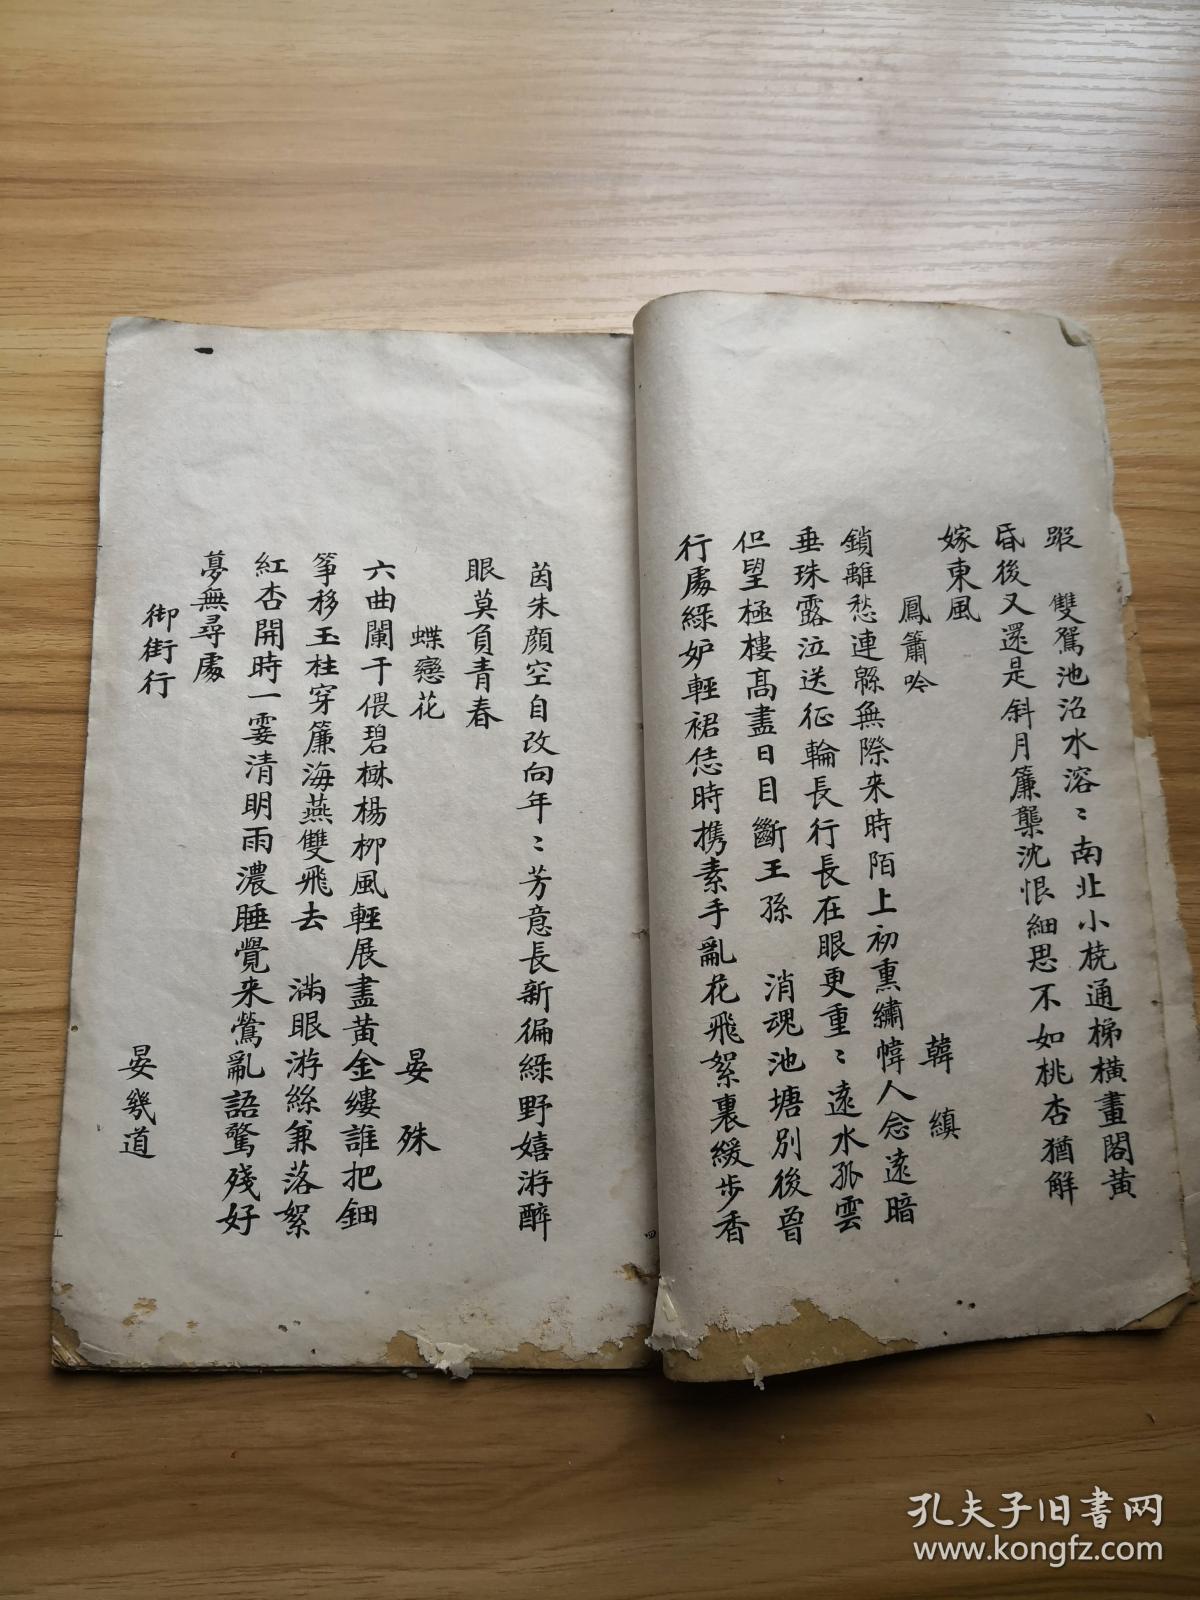 蹤　雙鴛池沼水溶〻南北小橈通梯橫畫閣黃
昏後又還是斜月簾櫳沈恨細思不如桃杏猶解
嫁東風
鳳簫吟　韓縝
鎖離愁連緜無際来時陌上初熏繡幃人念遠暗
垂珠露泣送征輪長行長在眼更重〻遠水孤雲
但望極樓高盡日目斷王孫　消魂池塘別後曾
行處綠妒輕裙恁時携素手亂花飛絮裏緩步香
茵朱顏空自改向年〻芳意長新徧綠野嬉游醉
眼莫負青春
蝶戀花　晏殊
六曲闌干偎碧樹楊柳風輕展盡黃金縷誰把鈿
箏移玉柱穿簾海燕雙飛去　滿眼游絲兼落絮
紅杏開時一霎清明雨濃睡覺来鶯亂語驚殘好
夢無尋處
御街行　晏幾道
四
孔夫子旧书网
www.kongfz.com